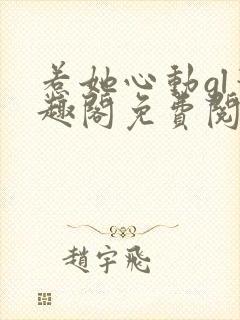 若她心動gl
趣閣免費閱
趙宇飛